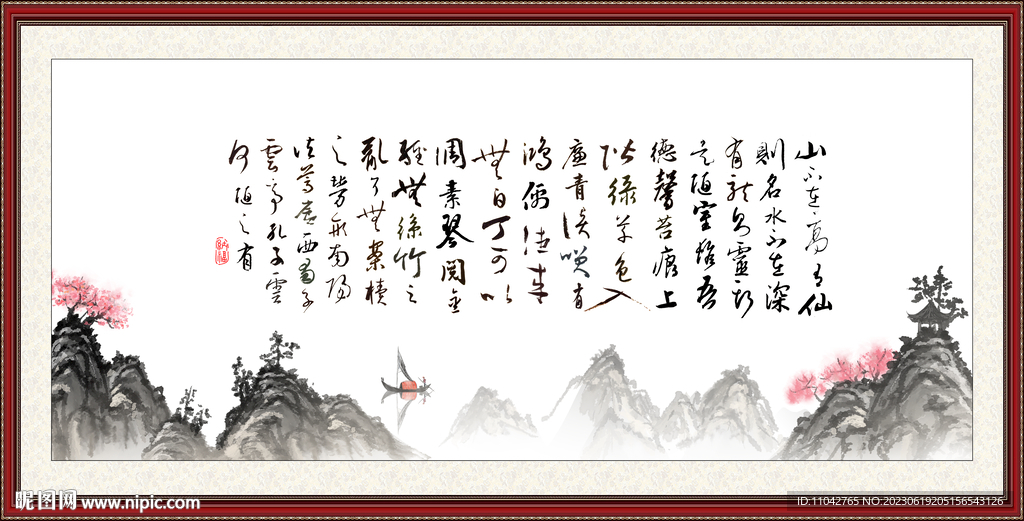 山不在高有仙
則名水不在深
有龍則靈斯
是陋室惟吾
德馨苔痕上
階綠草色入
廉青談笑有
鴻儒往來
無白丁可以
調素琴閱金
經無絲竹之
亂耳無案牘
之勞形南陽
諸葛廬西蜀子
雲亭孔子雲
何陋之有
昵图网 www.nipic.com
ID:11042765 NO:20230619205156543126